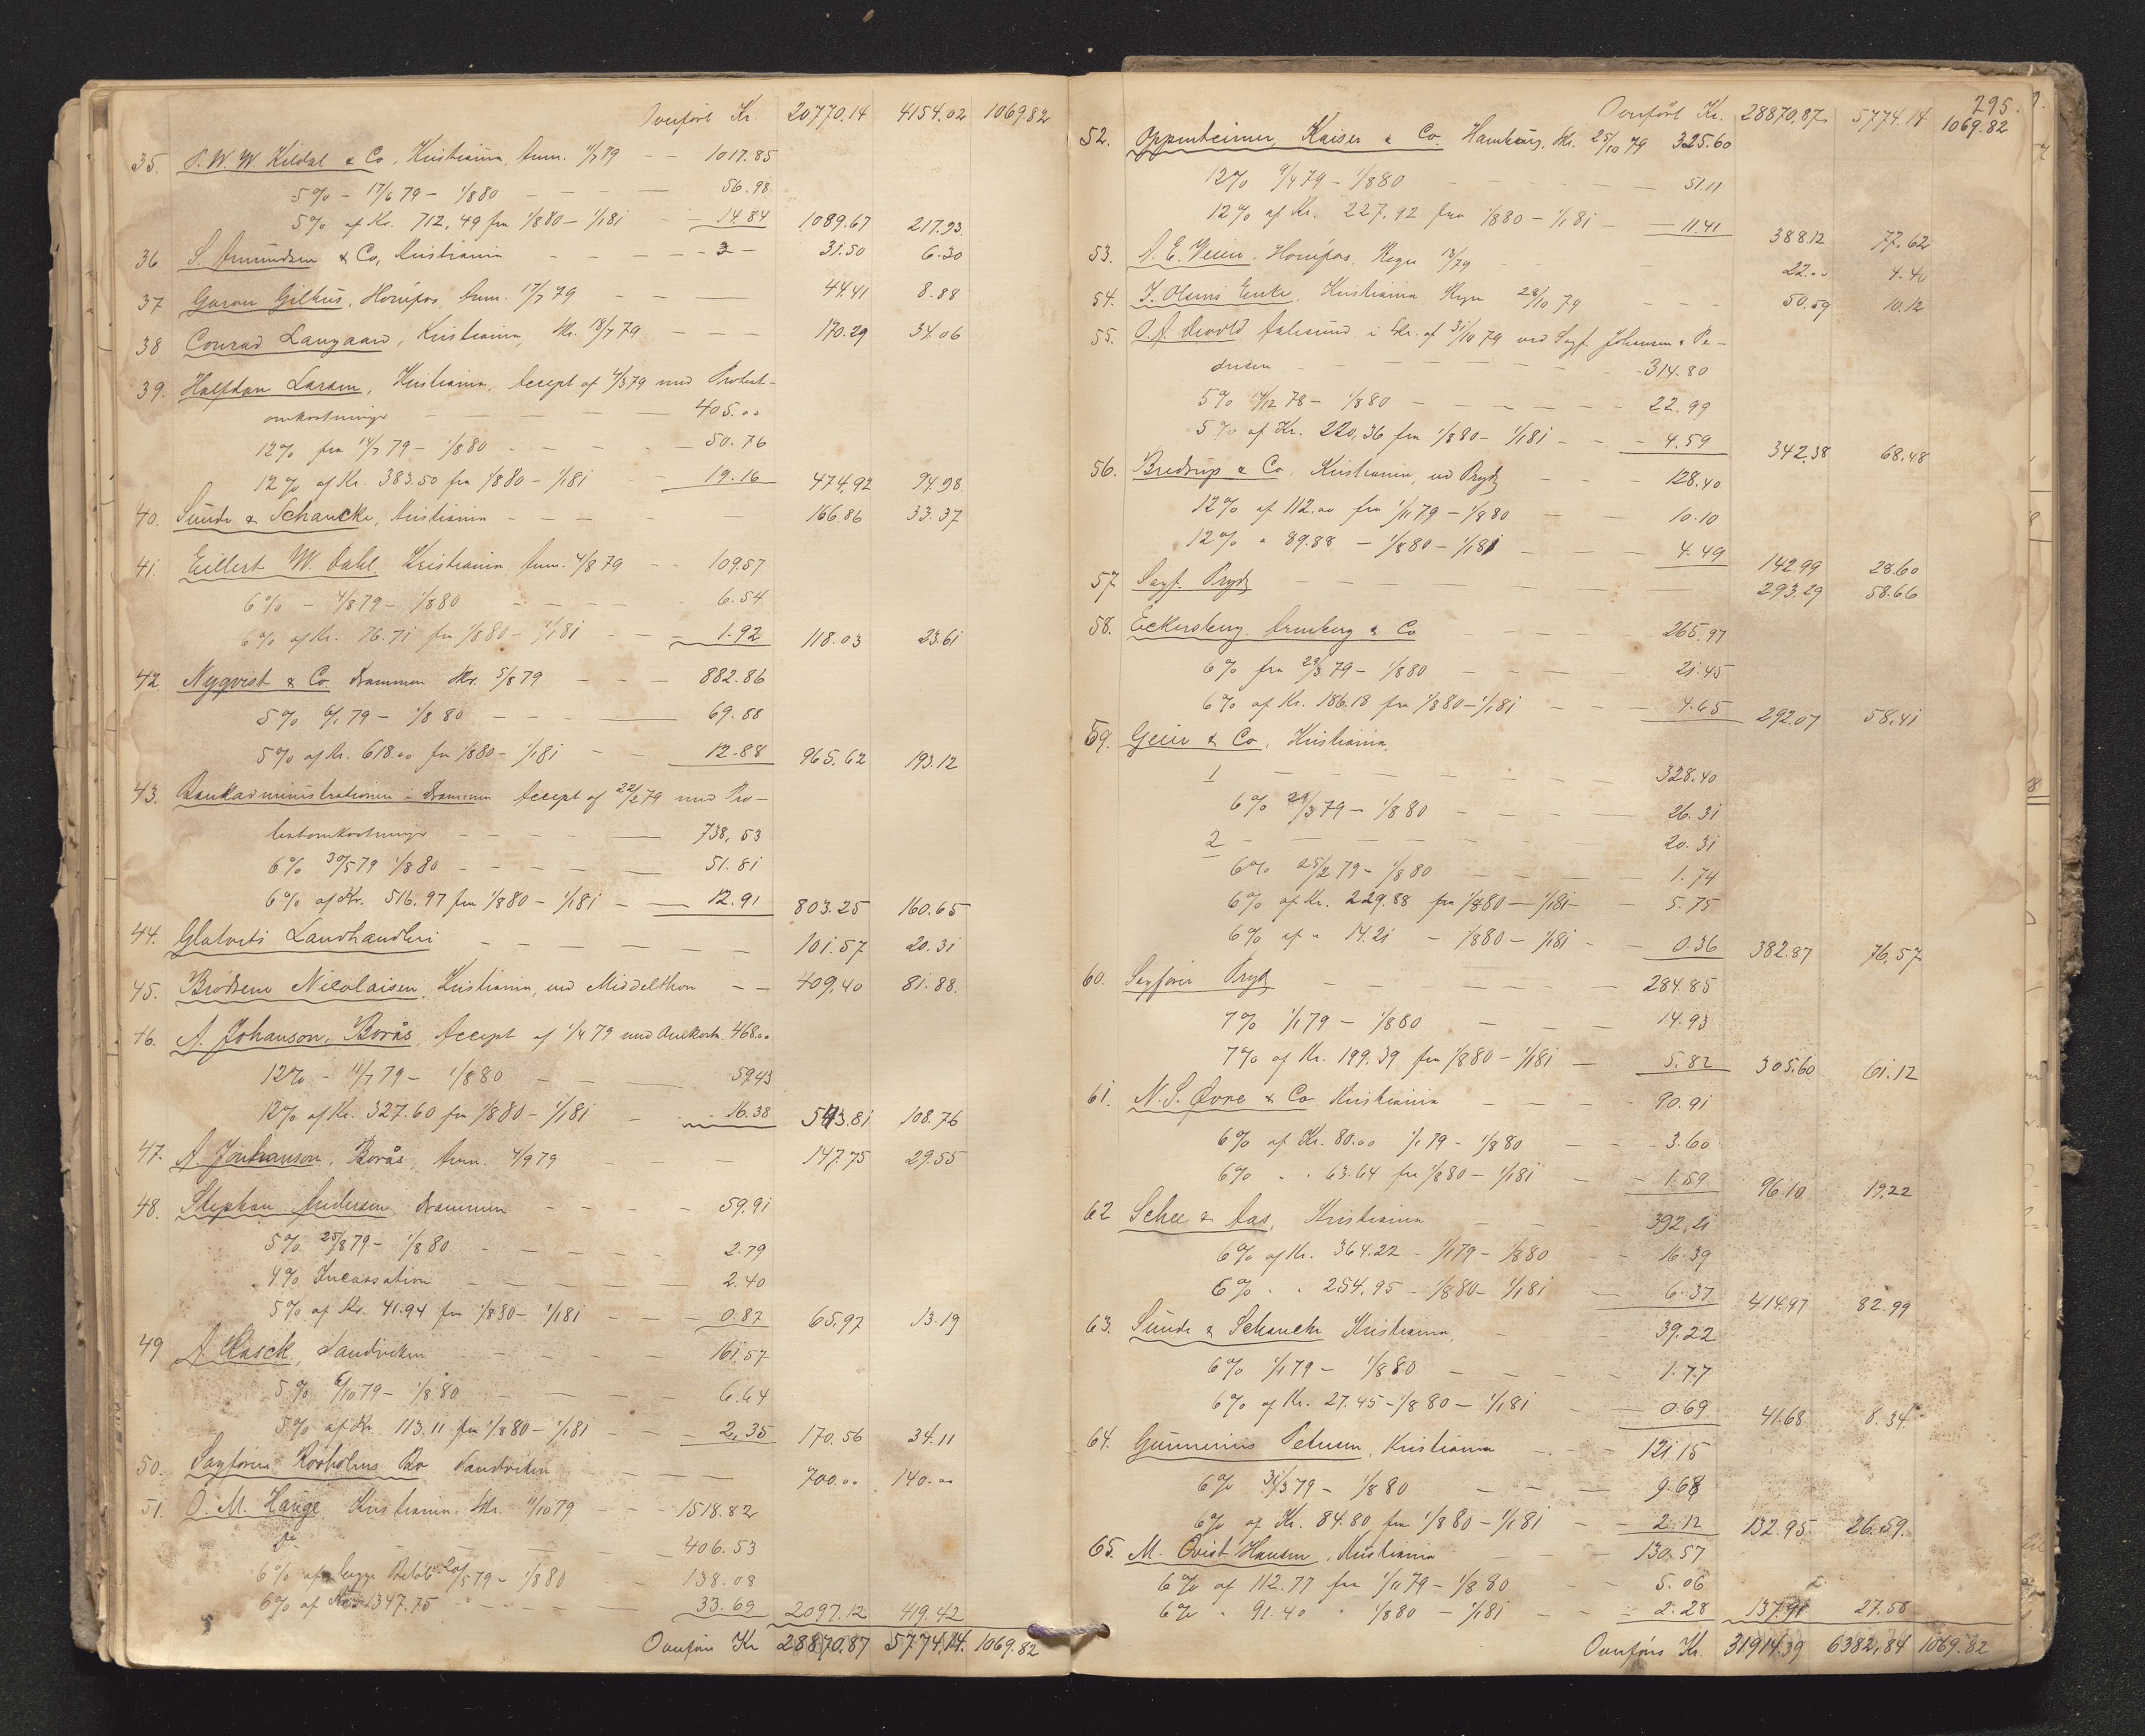 Overført Kr. 20770.14 4154.02 1069.82
35. P. W. W. Kildal & Co, Kristiania, 79 - - 1017.85
5% - 17/6 79 - 1/8 80 - - - - 56.98
5% af Kr. 712,49 fra 1/8 80 - 1/1 81 - - 14.84 1089.67 217.93
36 S. Amundsen & Co, Kristiania - - - - 31.50 6.30
37 Garver Gilhus, Honefos, 17/7 79 - - - 44.41 8.88
38 Conrad Langaard, Kristiania, 18/7 79 - - - 170.29 34.06
39. Halfdan Larsen, Kristiania, Accept af 4/3 79 med Protest-
omkostninger - - - - 405.00
12% fra 14/7 79 - 1/8 80 - - - - 50.76
12% af Kr. 383.50 fra 1/8 80 - 1/1 81 - 19.16 474.92 94.98
40. Sunde & Schancke, Kristiania - - - - - 166.86 33.37
41. Eillert W. Dahl Kristiania 4/8 79 - - 109.57
6% - 4/8 79 - 1/8 80 - - - - 6.54
6% af Kr. 76.71 fra 1/8 80 - 1/1 81 - - - 1.92 118.03 23.61
42. Nyqvist & Co Drammen 5/8 79 - - - 882.86
5% 6/1 79 - 1/8 80 - - - - 69.88
5% af Kr. 618.00 fra 1/8 80 - 1/1 81 - - 12.88 965.62 193.12
43. Bankadministrationen i Drammen Accept af 22/2 79 med Pro-
testomkostninger - - - - 738,53
6% 30/5 79 1/8 80 - - - - 51.81
6% af Kr. 516.97 fra 1/8 80 - 1/1 81 - - 12.91 803.25 160.65
44. Glatveds Landhandleri - - - - - - 101.57 20.31
45. Brødrene Nicolaisen, Kristiania, ved Middelthon - - 409,40 81.88.
46. A. Johanson, Borås, Accept af 1/4 79 med Omkostn. 468.00
12% - 11/7 79 - 1/8 80 - - - 59.43
12% af Kr. 327.60 fra 1/8 80 - 1/1 81 - - 16.38 543.81 108.76
47. A Jonhanson, Borås, 4/9 79 - - - - 147.75 29.55
48. Stephan Andersen, Drammen - - - - 59.91
5% 25/8 79 - 1/8 80 - - - - - 2.79
4% Incassation - - - - - 2.40
5% af Kr. 41.94 fra 1/8 80 - 1/1 81 - - - 0.87 65.97 13.19
49 A. Rasck, Sandviken - - - - - 161.57
5% 6/10 79 - 1/8 80 - - - - 6.64
5% af Kr. 113.11 fra 1/8 80 - 1/1 81 - - - 2,35 170.56 34.11
50. Sagfører Bo Sandviken - - - 700.00 140.00
51. O. M. Hauge Kristiania, 11/10 79 - - - 1518.82
do - - - - 406.53
6% af begge Beløb 20/5 79 - 1/8 80 - - 138.08
6% af Kr. 1347.75 - - - - - 33.69 2097.12 419.42
Overføres Kr 28870,87 5774,14. 1069.82
295.
Overført Kr. 28870,87 5774.14 1069.82
52. Oppenheimer, Kaiser & Co. Hamburg, 25/10 79 325.60
12% 9/4 79 - 1/8 80 - - - - - 51.11
12% af Kr. 227.92 fra 1/8 80 - 1/1 81 - - 11.41 388.12 77.62
53. A. E. Honefos, Regn 79 - - - 22.00 4.40
54. J. Olsens Enke, Kristiania Regn 28/10 79 - - - 50.59 10.12
55. O. A. Aalesund i af 31/10 79 ved Sagf. Johansen & Pe-
dersen - - - - - 314.80
5% 14/12 78 - 1/8 80 - - - - - 22.99
5% af Kr. 220,36 fra 1/8 80 - 1/1 81 - - - 4.59 342.38 68.48
56. Bredrup & Co. Kristiania, ved Prydz - - - 128.40
12% af 112.00 fra 1/11 79 - 1/8 80 - - - 10.10
12% " 89.88 - 1/8 80 - 1/1 81 - - - 4.49 142.99 28.60
57 Sagf. Prydz - - - - - - 293.29 58.66
58. Eckersberg, Arneberg & Co - - - 265.97
6% fra 29/3 79 - 1/8 80 - - - - 21.45
6% af Kr. 186.18 fra 1/8 80 - 1/1 81 - - - 4.65 292.07 58.41
59. Geier & Co, Kristiania,
1 - - - - - - - 328.40
6% 29/3 79 - 1/8 80 - - - - 26.31
2 - - - - - - 20.31
6% 25/2 79 - 1/8 80 - - - - 1.74
6% af Kr. 229.88 fra 1/8 80 - 1/1 81 - - 5.75
6% af " 14.21 - 1/8 80 - 1/1 81 - - 0.36 382.87 76.57
60. Sagfører Prydz - - - - - - 284.85
7% 1/11 79 - 1/8 80 - - - - 14.93
7% af Kr. 199.39 fra 1/8 80 - 1/1 81 - 5.82 305.60 61.12
61. N. S. Øvre & Co Kristiania - - - - 90.91
6% af Kr. 80.00 79 - 1/8 80 - - 3.60
6% " " 63.64 fra 1/8 80 - 1/1 81 - - 1.59 96.10 19.22
62 Schee & Aas, Kristiania - - - 392,21
6% af Kr. 364.22 - 1/11 79 - 1/8 80 - - 16.39
6% " " 254.95 - 1/8 80 - 1/1 81 - 6.37 414.97 82.99
63. Sunde & Schancke Kristiania, - - 39.22
6% 1/11 79 - 1/8 80 - - - - - 1.77
6% af Kr. 27.45 - 1/8 80 - 1/1 81 - - 0.69 41.68 8.34
64. Gunnerius Petersen, Kristiania - - - - 121.15
6% 31/3 79 - 1/8 80 - - - 9.68
6% af Kr. 84.80 fra 1/8 80 - 1/1 81 - - 2.12 132.95 26.59.
65. M. Qvist Hansen, Kristiania - - - 130.57
6% af 112.77 fra 1/11 79 - 1/8 80 - - 5.06
6% " 91.40 " 1/8 80 - 1/1 81 - - - 2.28 137.91 27.58
Overføres Kr. 31914.39 6382,84 1069.82